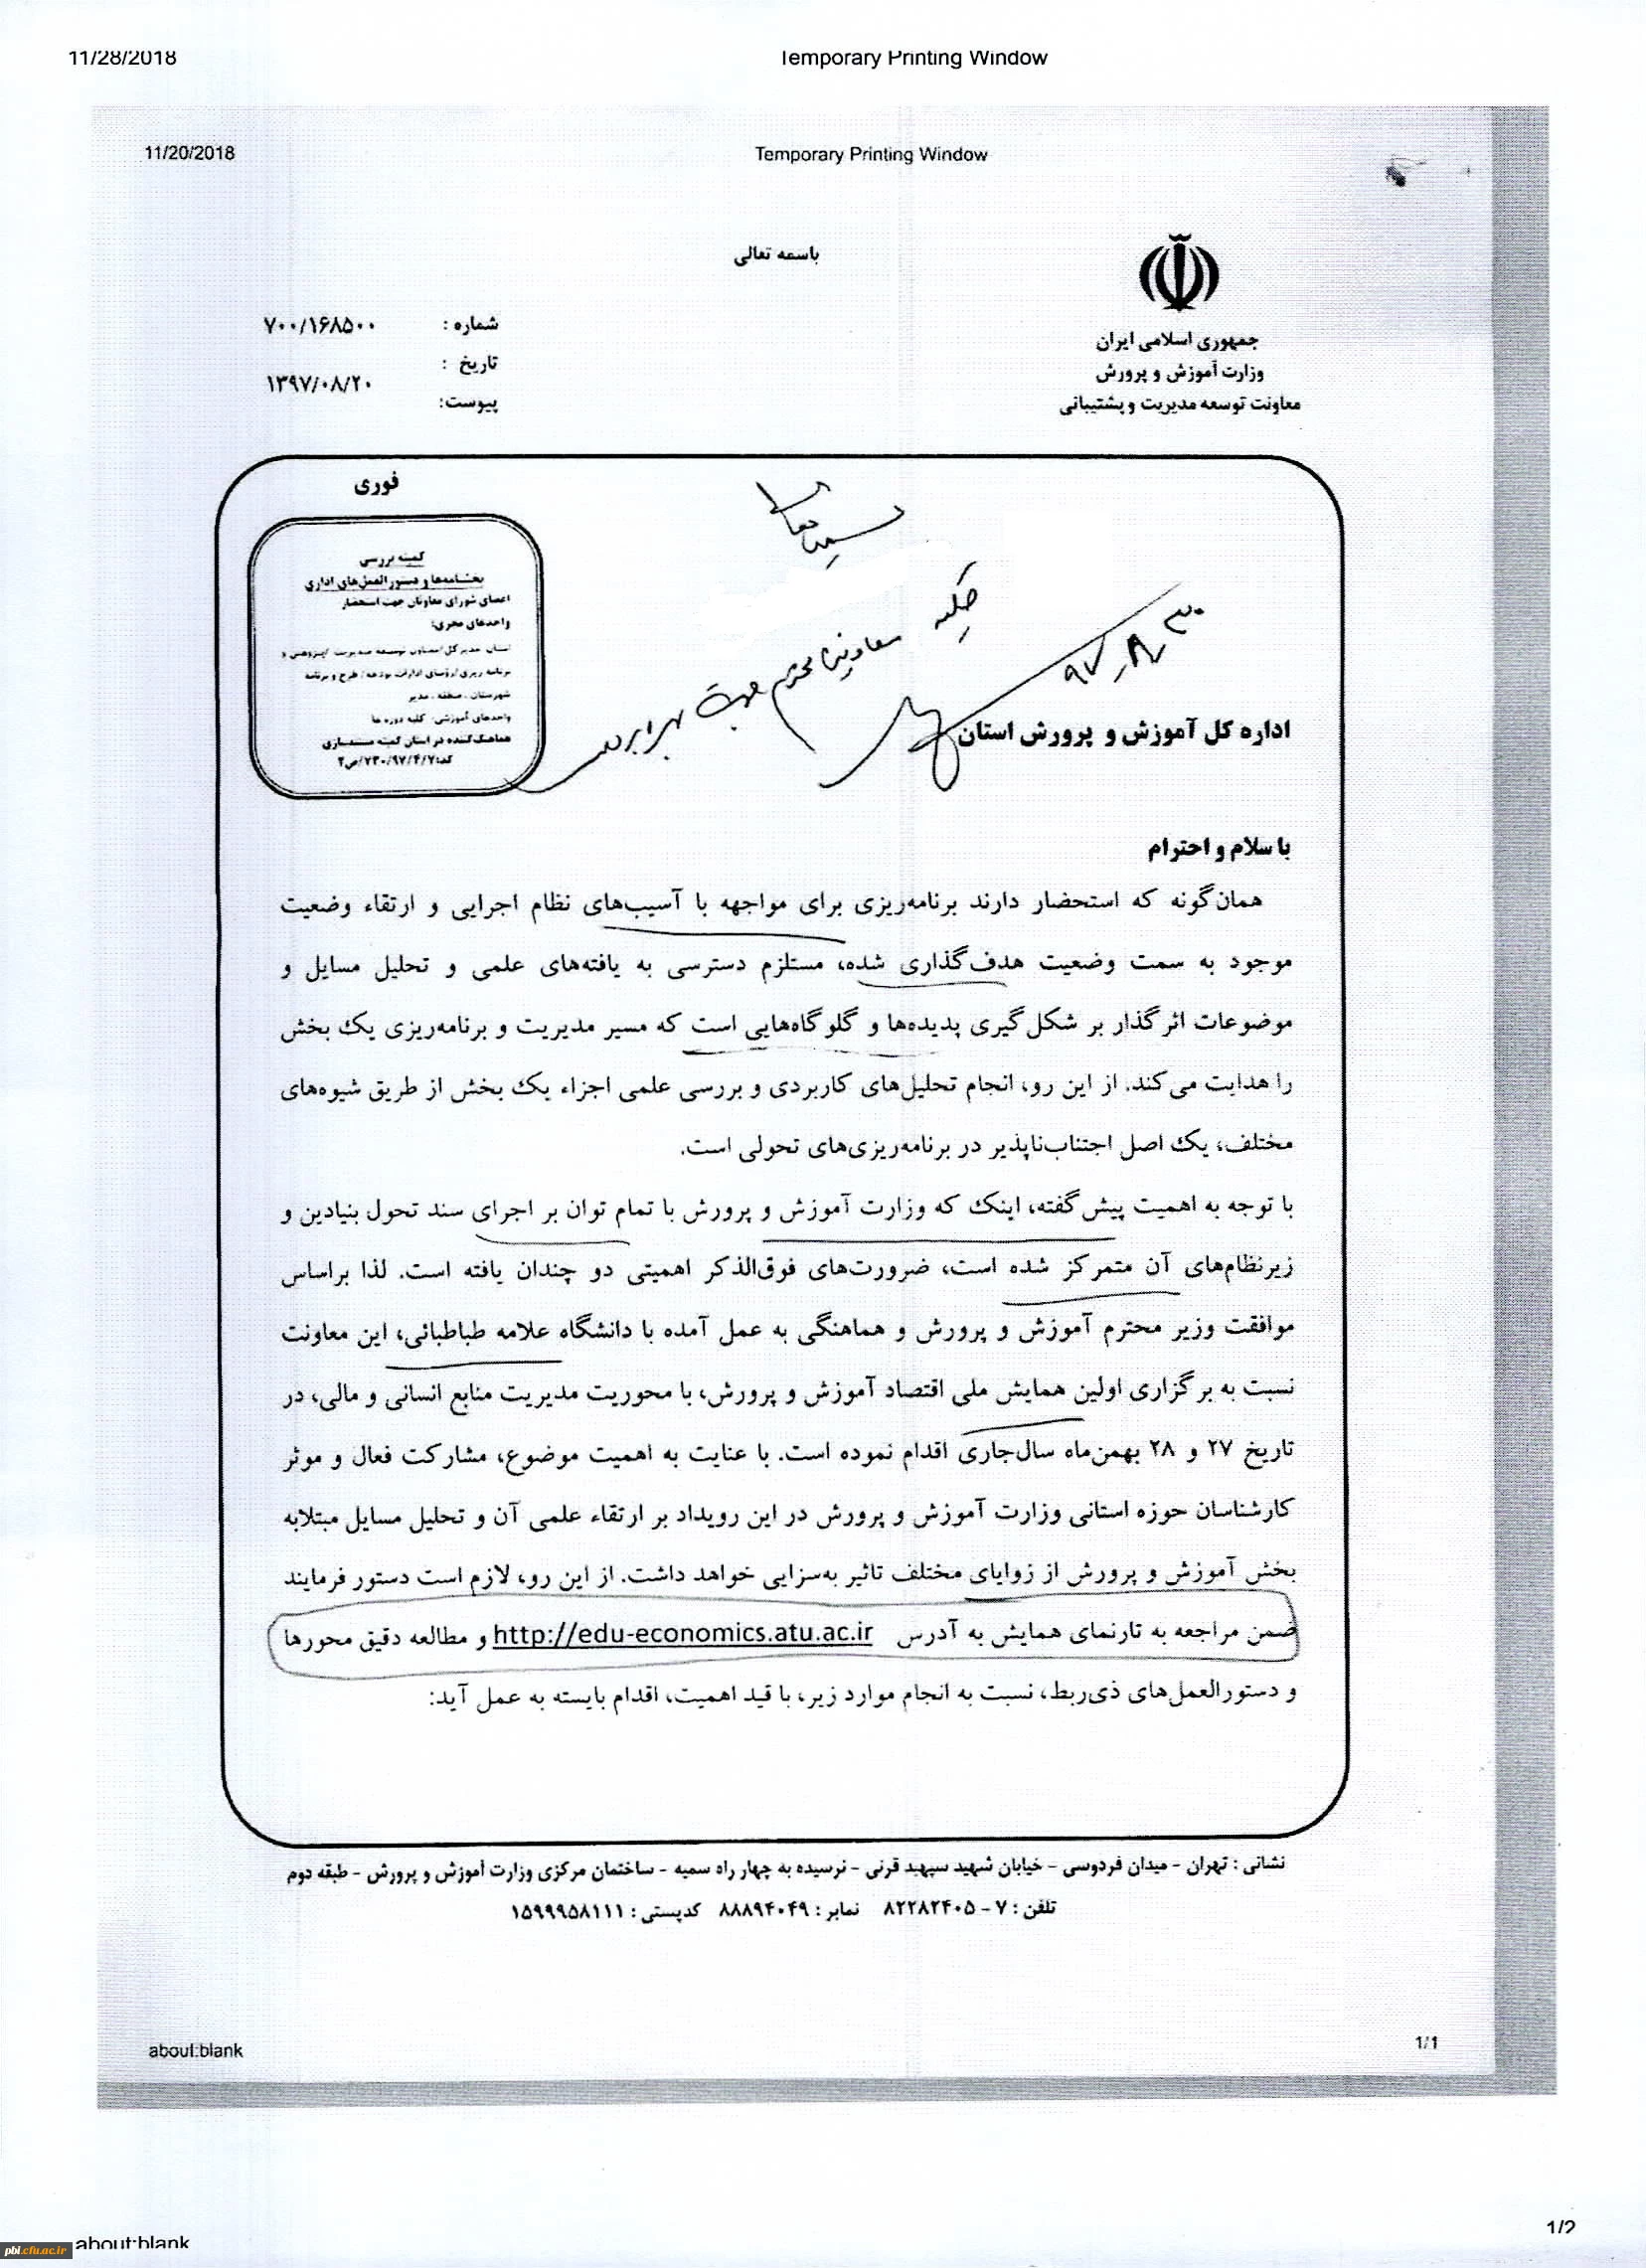 11/28/2018 Temporary Printing Window
11/20/2018 Temporary Printing Window
باسمه تعالی
جمهوری اسلامی ایران
وزارت آموزش و پرورش
معاونت توسعه مدیریت و پشتیبانی
شماره : ۷۰۰/۱۶۸۵۰۰
تاریخ : ۱۳۹۷/۰۸/۲۰
پیوست:
فوری
کمیته بررسی
بخشنامه‌ها و دستورالعمل‌های اداری
اعضای شورای معاونان جهت استحضار
واحدهای مجری:
استان مدیرکل/معاون توسعه مدیریت /پژوهش و
برنامه ریزی/رؤسای ادارات بودجه/ طرح و برنامه
شهرستان ، منطقه ، مدیر
واحدهای آموزشی- کلیه دوره ها
هماهنگ‌کننده در استان کمیته مستندسازی
کلیه معاونین محترم جهت
۹۷-۸-۳۰
اداره کل آموزش و پرورش استان
با سلام و احترام
همان‌گونه که استحضار دارند برنامه‌ریزی برای مواجهه با آسیب‌های نظام اجرایی و ارتقاء وضعیت
موجود به سمت وضعیت هدف‌گذاری شده، مستلزم دسترسی به یافته‌های علمی و تحلیل مسایل و
موضوعات اثرگذار بر شکل‌گیری پدیده‌ها و گلوگاه‌هایی است که مسیر مدیریت و برنامه‌ریزی یک بخش
را هدایت می‌کند. از این رو، انجام تحلیل‌های کاربردی و بررسی علمی اجزاء یک بخش از طریق شیوه‌های
مختلف، یک اصل اجتناب‌ناپذیر در برنامه‌ریزی‌های تحولی است.
با توجه به اهمیت پیش‌گفته، اینک که وزارت آموزش و پرورش با تمام توان بر اجرای سند تحول بنیادین و
زیرنظام‌های آن متمرکز شده است، ضرورت‌های فوق‌الذکر اهمیتی دو چندان یافته است. لذا براساس
موافقت وزیر محترم آموزش و پرورش و هماهنگی به عمل آمده با دانشگاه علامه طباطبائی، این معاونت
نسبت به برگزاری اولین همایش ملی اقتصاد آموزش و پرورش، با محوریت مدیریت منابع انسانی و مالی، در
تاریخ ۲۷ و ۲۸ بهمن‌ماه سال‌جاری اقدام نموده است. با عنایت به اهمیت موضوع، مشارکت فعال و موثر
کارشناسان حوزه استانی وزارت آموزش و پرورش در این رویداد بر ارتقاء علمی آن و تحلیل مسایل مبتلابه
بخش آموزش و پرورش از زوایای مختلف تاثیر به‌سزایی خواهد داشت. از این رو، لازم است دستور فرمایند
ضمن مراجعه به تارنمای همایش به آدرس http://edu-economics.atu.ac.ir و مطالعه دقیق محورها
و دستورالعمل‌های ذی‌ربط، نسبت به انجام موارد زیر، با قید اهمیت، اقدام بایسته به عمل آید:
نشانی : تهران - میدان فردوسی - خیابان شهید سپهبد قرنی - نرسیده به چهار راه سمیه - ساختمان مرکزی وزارت آموزش و پرورش - طبقه دوم
تلفن : ۷ - ۸۲۲۸۲۴۰۵ نمابر : ۸۸۸۹۴۰۴۹ کدپستی : ۱۵۹۹۹۵۸۱۱۱
about:blank 1/1
about:blank 1/2
pbi.cfu.ac.ir